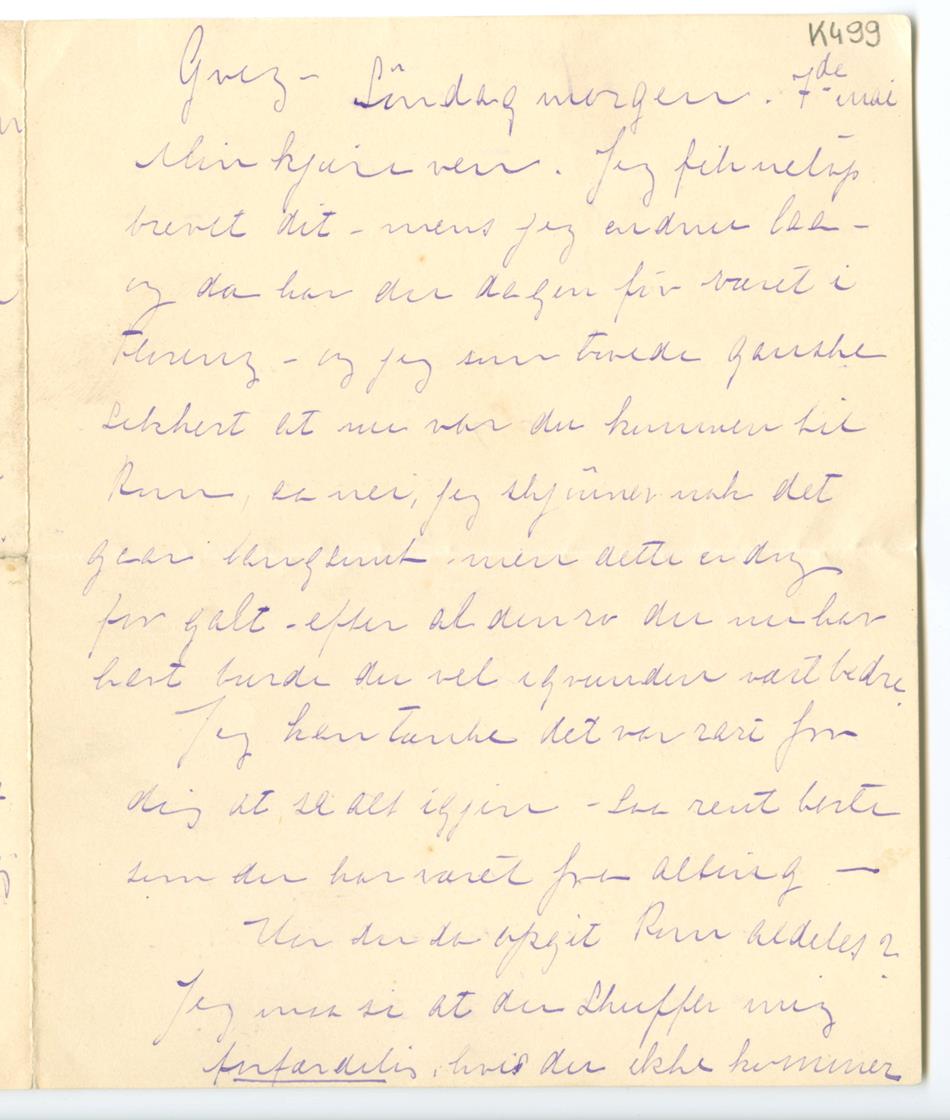 K499
Grez – Söndag morgen. 7de mai
Min kjære ven. Jeg fik netop
brevet dit – mens jeg endnu laa –
og da har du dagen för været i
Florenz – og jeg som troede ganske
sikkert at nu var du kommen til
Rom, aa nei, jeg skjönner nok det
gaar langsomt – men dette er dog
for galt – efter al den ro du nu har
havt burde du vel igrunden vært bedre.
Jeg kan tænke det var rart for
dig at se alt igjen – Saa rent borte
som du har været fra alting –
Har du da opgit Rom aldeles?
Jeg maa si at du skuffer mig
forfærdelig, hvis du ikke kommer